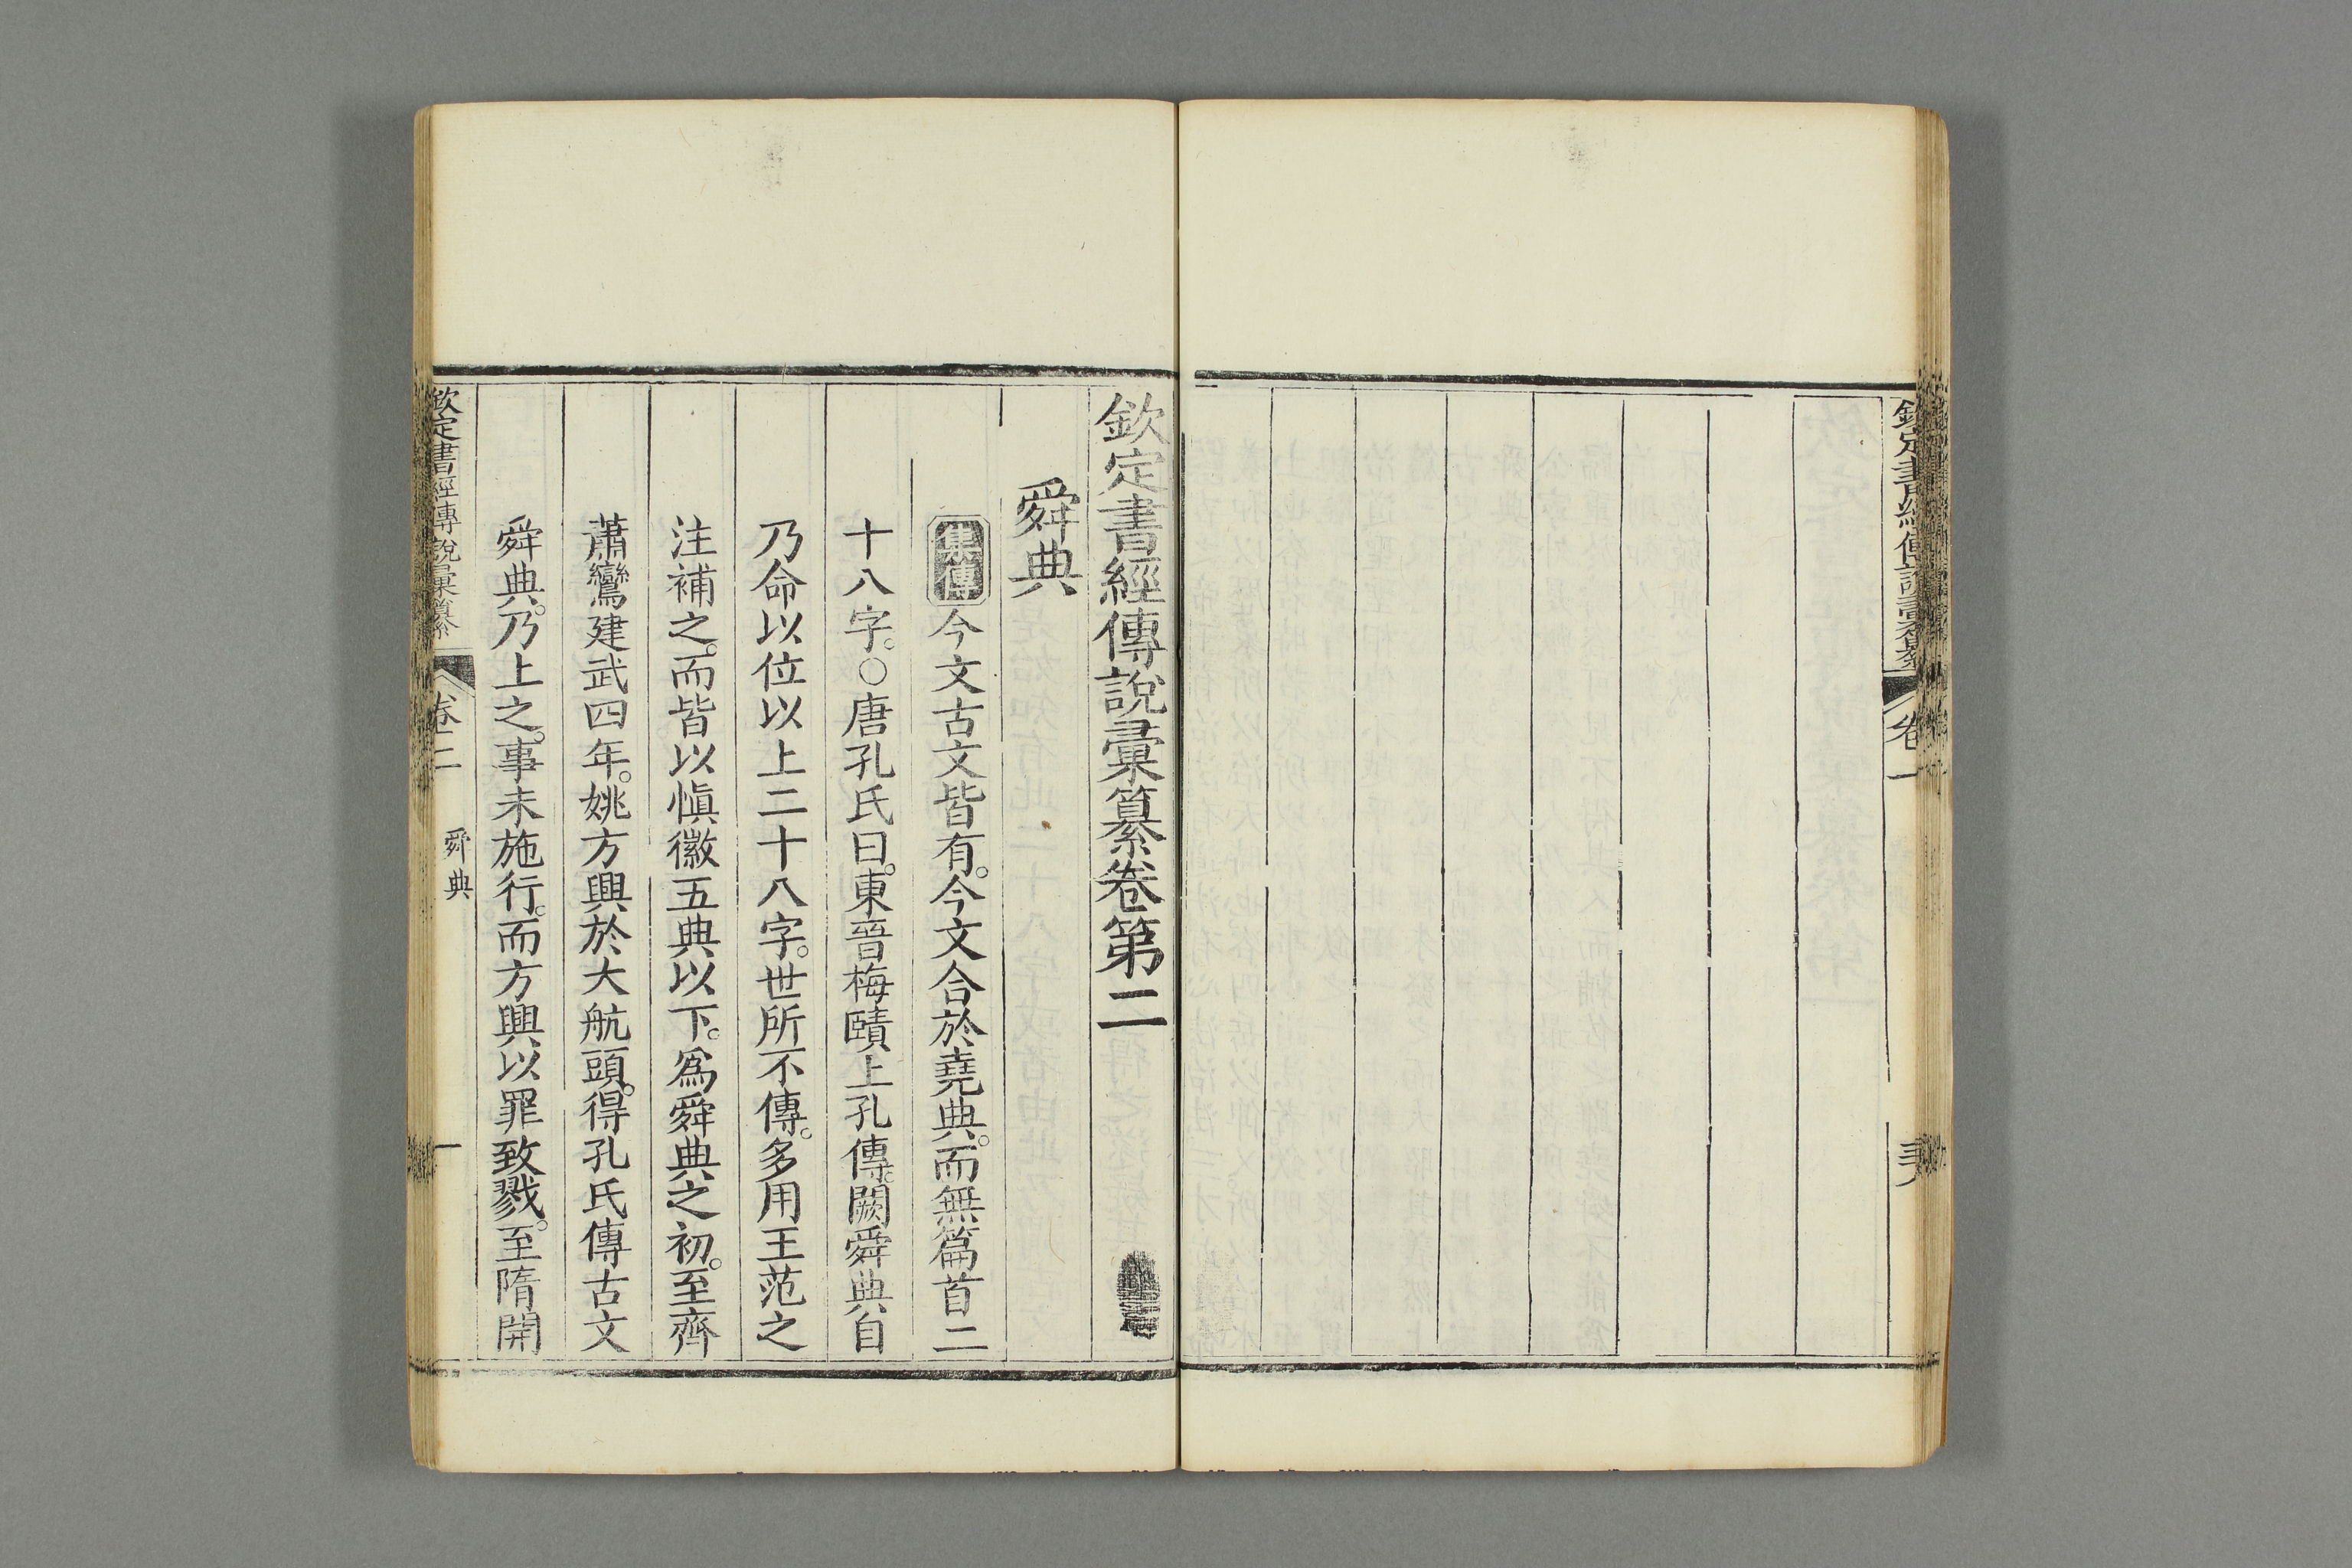 欽定書經傳說彙纂
卷一
欽定書經傳說彙纂卷第二
舜典
集傳今文古文皆有。今文合於堯典。而無篇首二
十八字。○唐孔氏曰。東晉梅賾上孔傳。闕舜典自
乃命以位以上二十八字。世所不傳。多用王范之
注補之。而皆以愼徽五典以下。爲舜典之初。至齊
蕭鸞建武四年。姚方興於大航頭。得孔氏傳古文
舜典。乃上之。事未施行。而方興以罪致戮。至隋開
欽定書經傳說彙纂
卷二
舜典
一